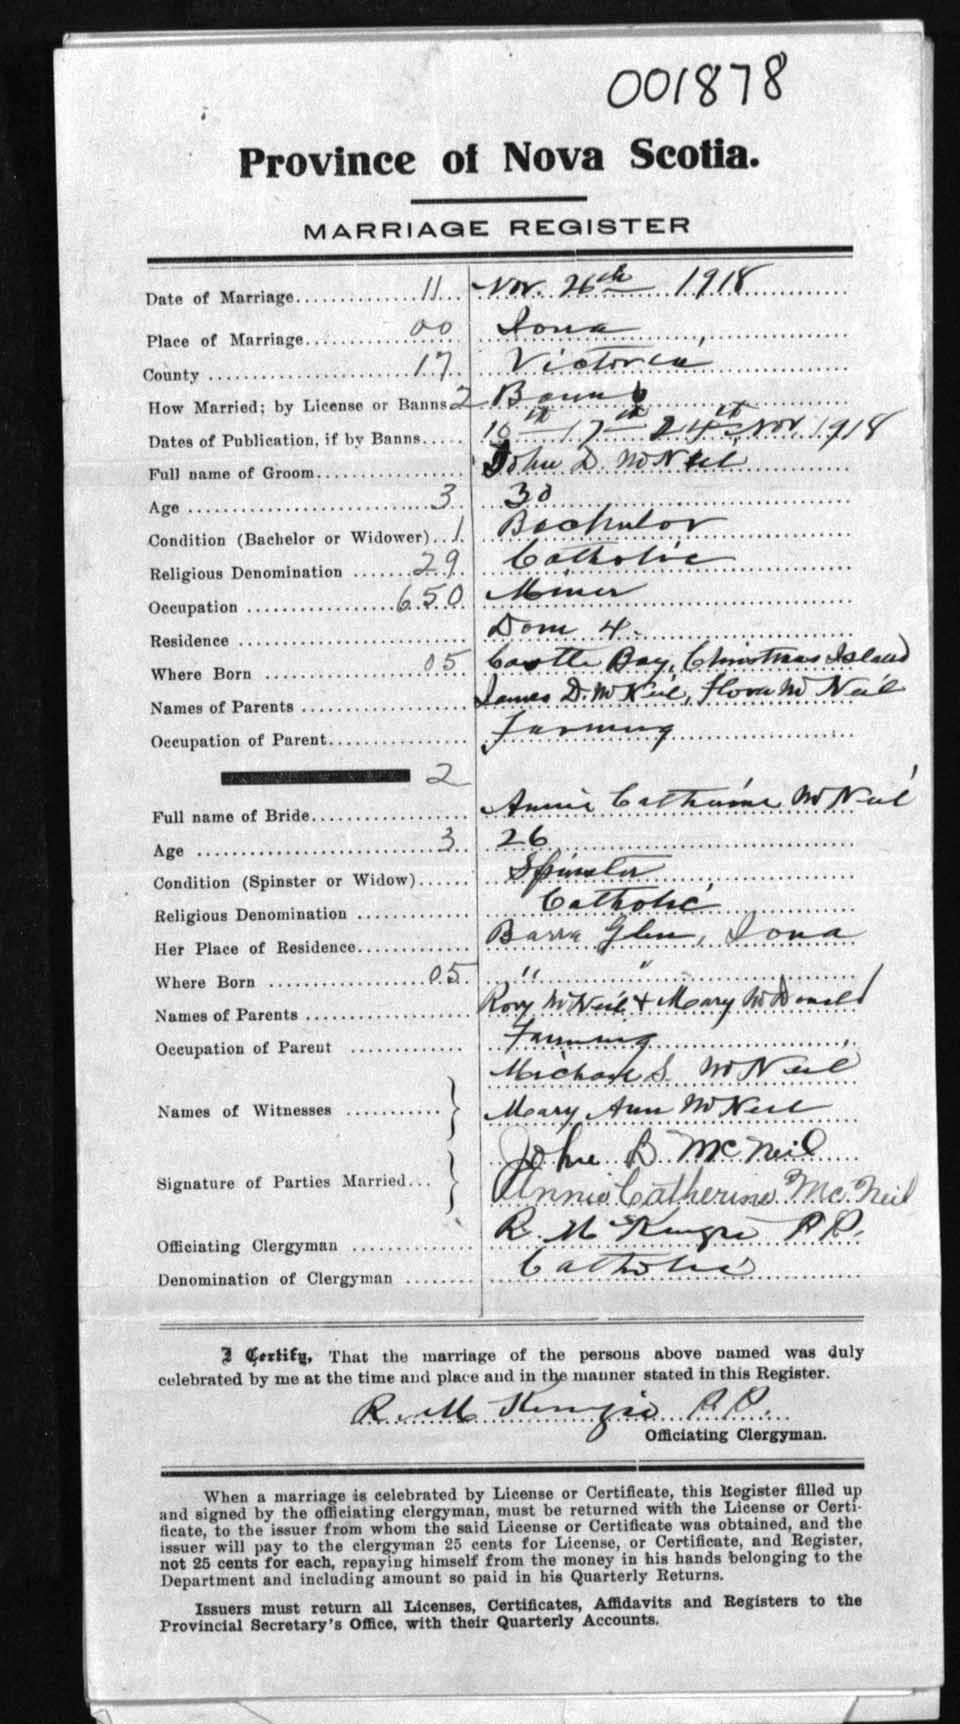 001878
Province of Nova Scotia.
MARRIAGE REGISTER
Date of Marriage 11 Nov. 26th 1918
Place of Marriage 00 Iona
County 17 Victoria
How Married; by License or Banns 2 Banns
Dates of Publication, if by Banns 10th 17th 24th Nov. 1918
Full name of Groom John D. McNeil
Age 3 30
Condition (Bachelor or Widower) 1 Bachelor
Religious Denomination 29 Catholic
Occupation 650 Miner
Residence Dom 4.
Where Born 05 Castle Bay, Christmas Island
Names of Parents James D. McNeil, Flora McNeil
Occupation of Parent Farming
2
Full name of Bride Annie Catherine McNeil
Age 3 26
Condition (Spinster or Widow) Spinster
Religious Denomination Catholic
Her Place of Residence Barra Glen, Iona
Where Born 05 " "
Names of Parents Rory McNeil & Mary McDonald
Occupation of Parent Farming
Michael S. McNeil
Names of Witnesses } Mary Ann McNeil
John B McNeil
Signature of Parties Married } Annie Catherine McNeil
Officiating Clergyman R. McKenzie P.P.
Denomination of Clergyman Catholic
I Certify, That the marriage of the persons above named was duly
celebrated by me at the time and place and in the manner stated in this Register.
R. McKenzie P.P.
Officiating Clergyman.
When a marriage is celebrated by License or Certificate, this Register filled up
and signed by the officiating clergyman, must be returned with the License or Certi-
ficate, to the issuer from whom the said License or Certificate was obtained, and the
issuer will pay to the clergyman 25 cents for License, or Certificate, and Register,
not 25 cents for each, repaying himself from the money in his hands belonging to the
Department and including amount so paid in his Quarterly Returns.
Issuers must return all Licenses, Certificates, Affidavits and Registers to the
Provincial Secretary's Office, with their Quarterly Accounts.